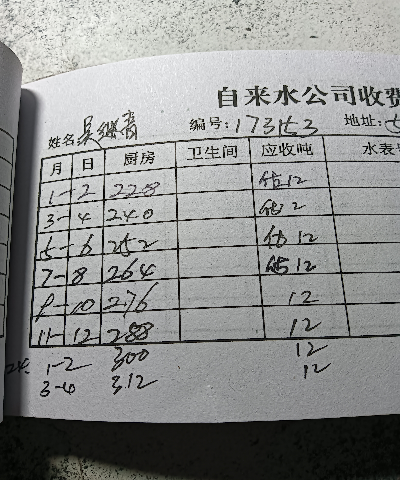 自来水公司收费
姓名 吴继高 编号: 173153 地址:
月 日 厨房 卫生间 应收吨 水表
1-2 228 估12
3-4 240 估12
5-6 252 估12
7-8 264 估12
9-10 276 12
11-12 288 12
1-2 300 12
3-4 312 12